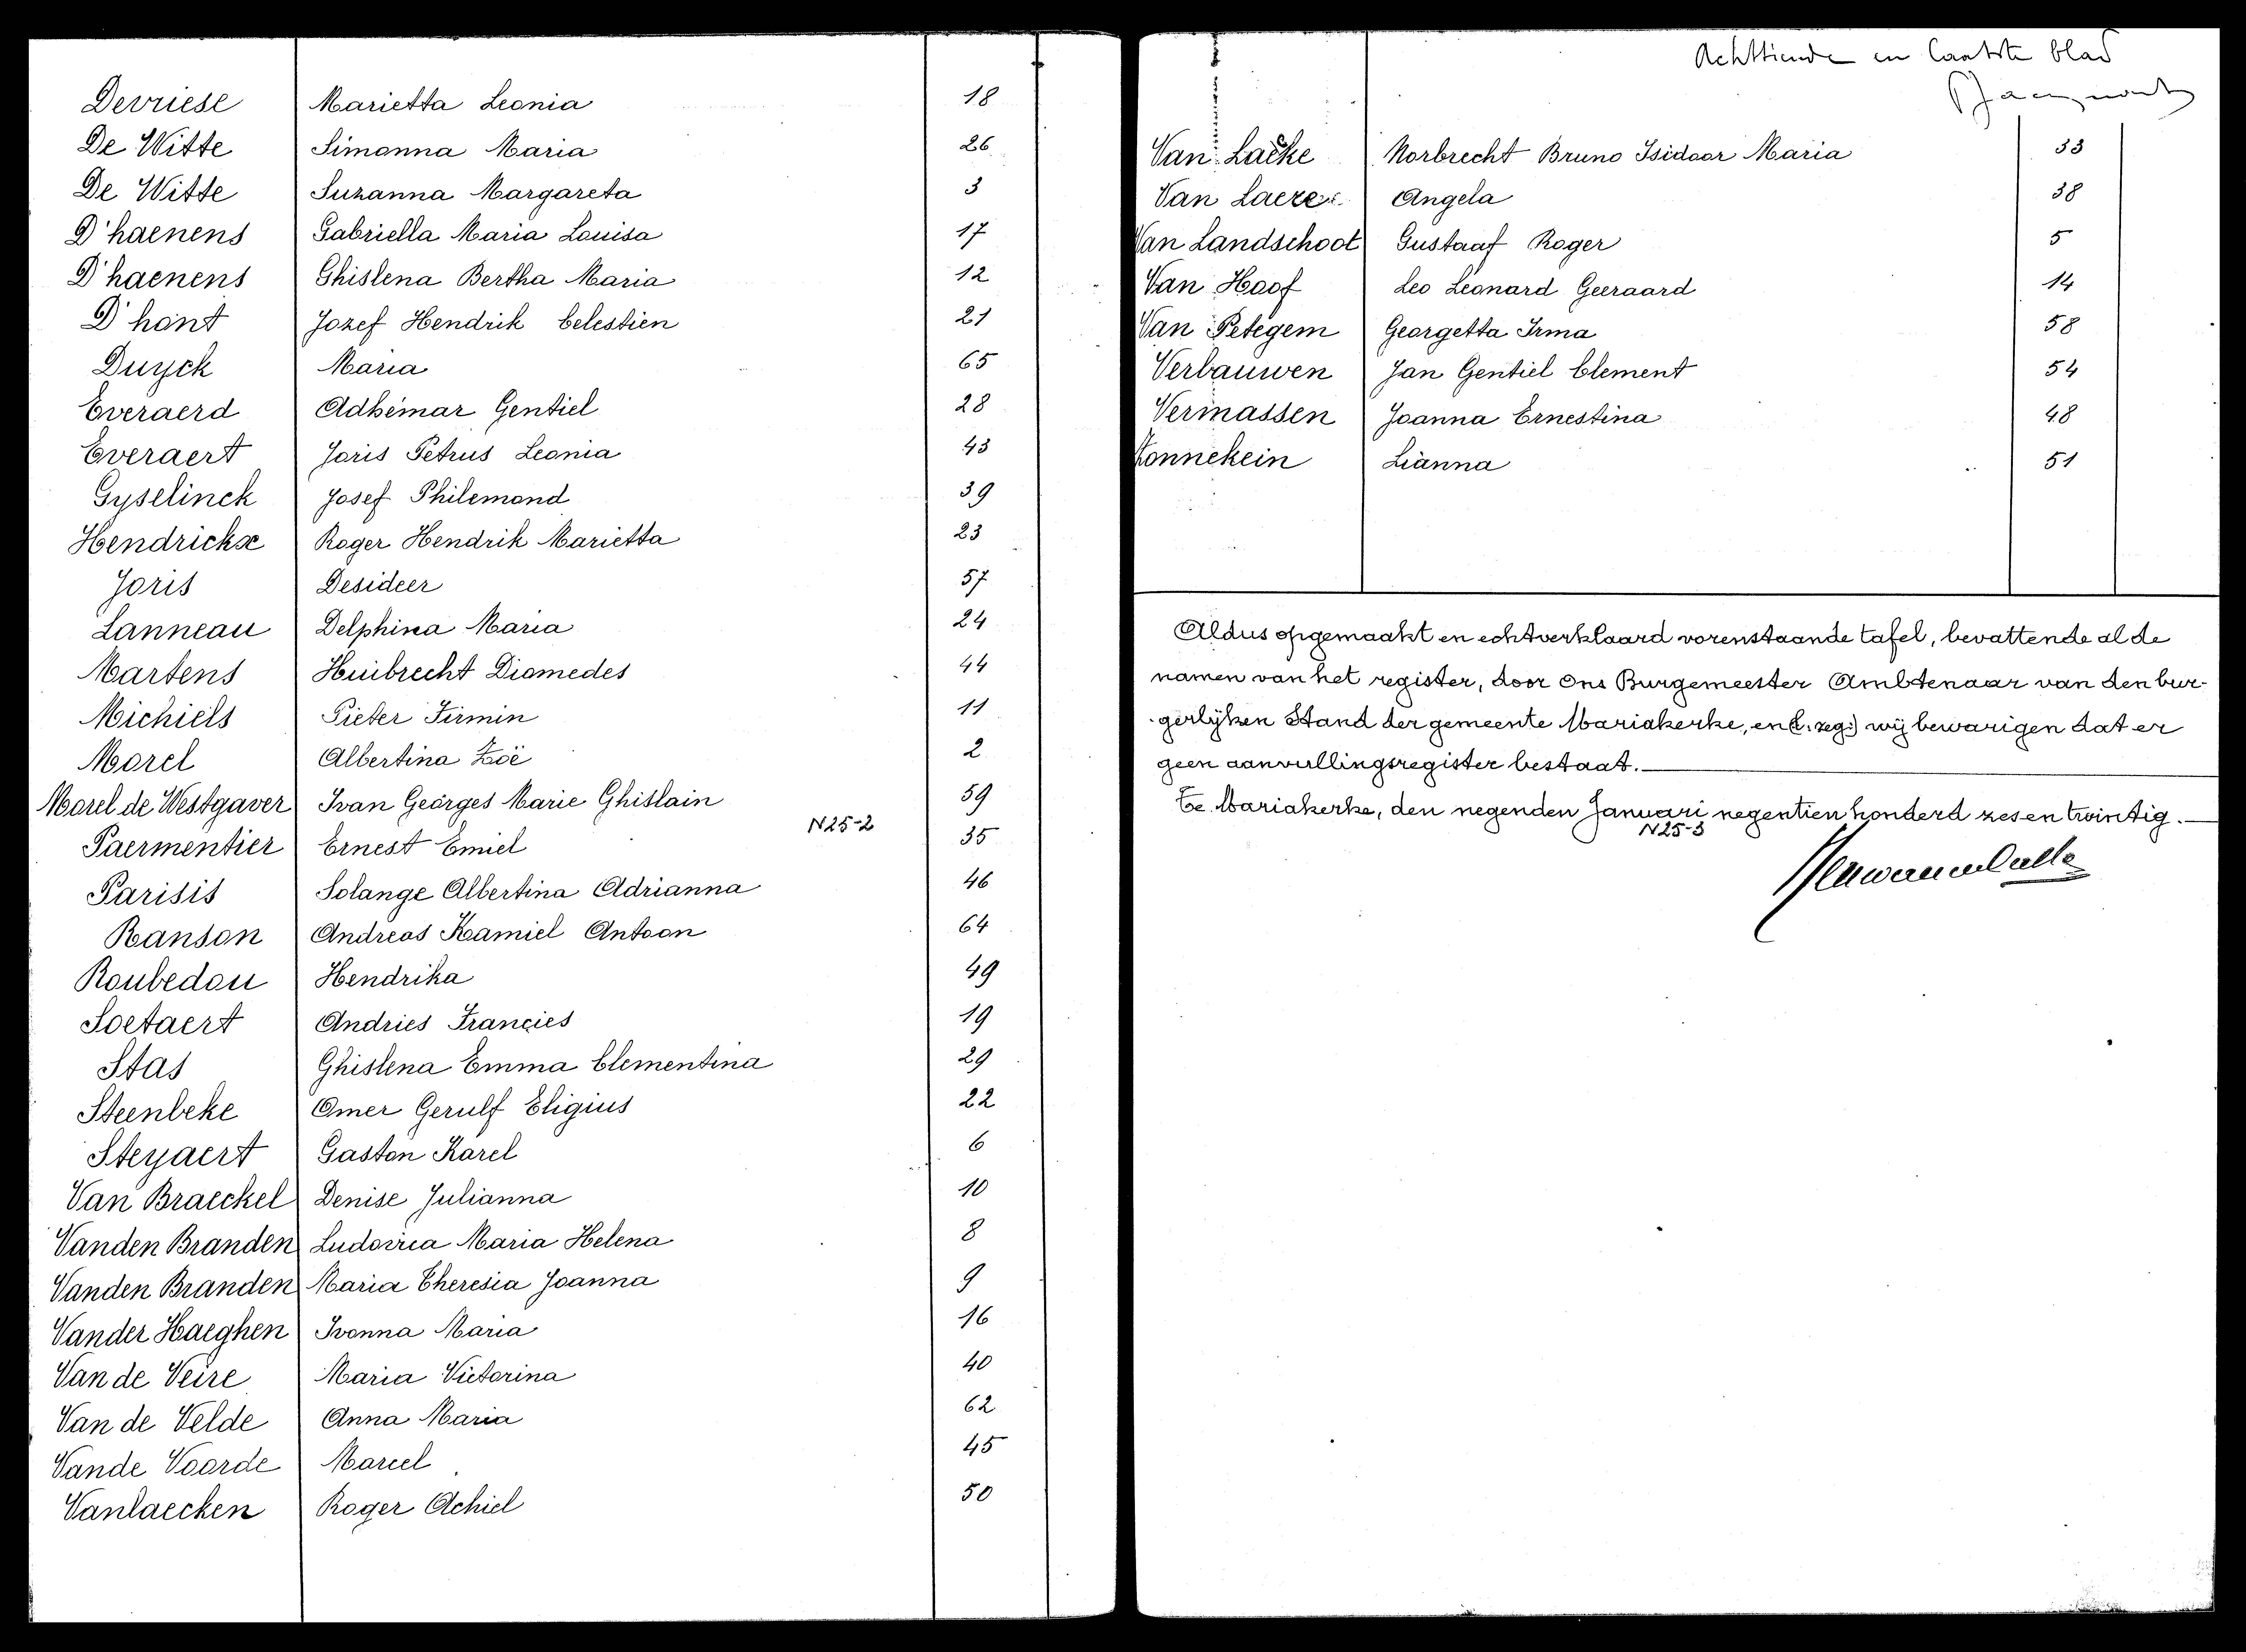 Devriese Marietta Leonia 18
De Witte Simonna Maria 26
De Witte Suzanna Margareta 3
D'haenens Gabriella Maria Louisa 17
D'haenens Ghislena Bertha Maria 12
D'hont Jozef Hendrik Celestien 21
Duyck Maria 65
Everaerd Adhémar Gentiel 28
Everaert Joris Petrus Leonia 43
Gyselinck Josef Philemond 39
Hendrickx Roger Hendrik Marietta 23
Joris Desideer 57
Lanneau Delphina Maria 24
Martens Huibrecht Diomedes 44
Michiels Pieter Firmin 11
Morel Albertina Zoë 2
Morel de Westgaver Ivan Georges Marie Ghislain 59
N25-2
Paermentier Ernest Emiel 35
Parisis Solange Albertina Adrianna 46
Ranson Andreas Kamiel Antoon 64
Roubedou Hendrika 49
Soetaert Andries Francies 19
Stas Ghislena Emma Clementina 29
Steenbeke Omer Gerulf Eligius 22
Steyaert Gaston Karel 6
Van Braeckel Denise Julianna 10
Vanden Branden Ludovica Maria Helena 8
Vanden Branden Maria Theresia Joanna 9
Vander Haeghen Ivonna Maria 16
Van de Veire Maria Victorina 40
Van de Velde Anna Maria 62
Vande Voorde Marcel 45
Vanlaecken Roger Achiel 50
Achttiende en laatste blad
Van Laeke Norbrecht Bruno Isidoor Maria 33
Van Laere Angela 38
Van Landschoot Gustaaf Roger 5
Van Hoof Leo Leonard Geeraard 14
Van Petegem Georgetta Irma 58
Verbauwen Jan Gentiel Clement 54
Vermassen Joanna Ernestina 48
Vonnekein Lianna 51
Aldus opgemaakt en echtverklaard vorenstaande tafel, bevattende al de
namen van het register, door Ons Burgemeester Ambtenaar van den bur-
gerlijken Stand der gemeente Mariakerke, en (l. zeg:) wij bewarigen dat er
geen aanvullingsregister bestaat.
Te Mariakerke, den negenden Januari negentien honderd zes en twintig.
N25-3